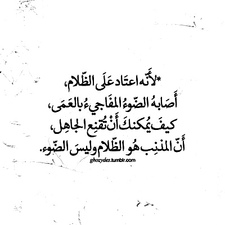 *لأنّه اعتاد عَلى الظّلام،
أَصَابهُ الضّوءُ المفَاجيءُ بالعَمَى،
كيفَ يُمكنكَ أَنْ تُقنِع الجَاهِل،
أَنّ المذنِب هُو الظّلام وليسَ الضّوء.
ghozydes.tumblr.com